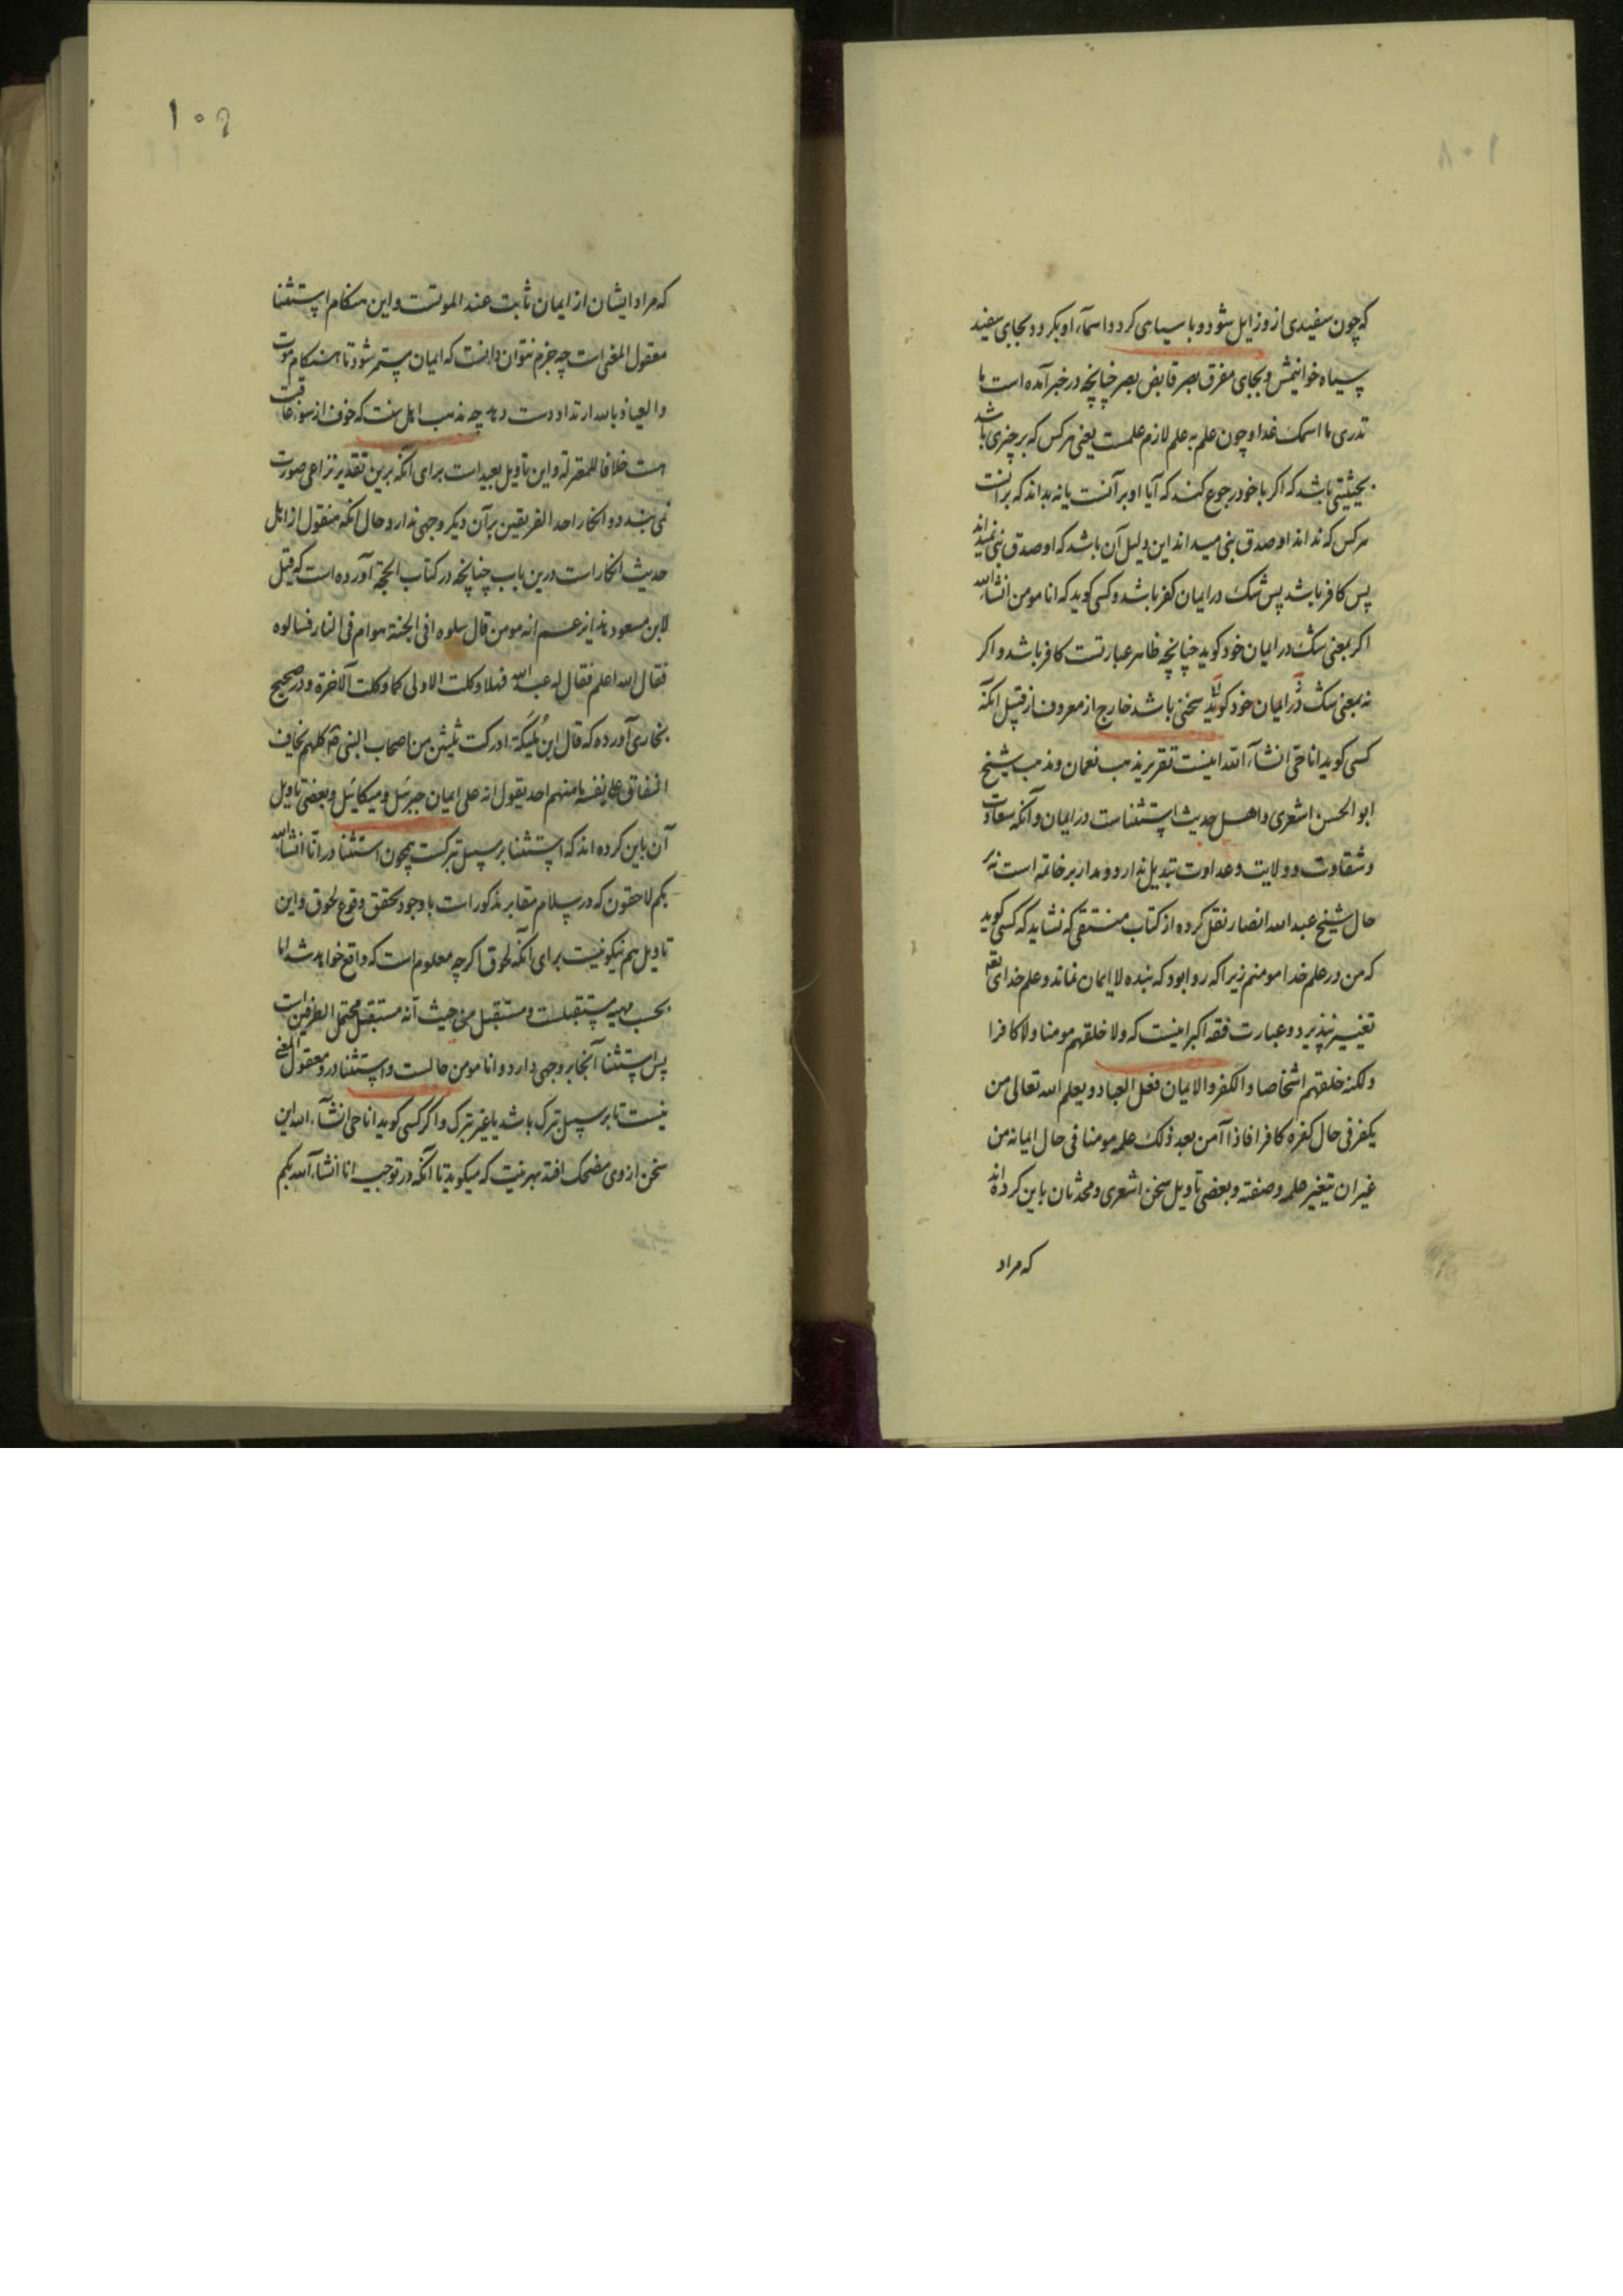 ۱۰۸
که چون سفیدی ازو زایل شود و با سیاهی کردد اسمآء او بکردد و بجای سفید
سیاه خوانیمش و بجای مفرق بصر قابض بصر چنانچه در خبر آمده است با
تدری ما اسمک غدا و چون علم به علم لازم علمست یعنی هرکس که بر چیزی باشد
بحیثیتی باشد که اکر با خود رجوع کند که آیا او بر آنست یا نه بداند که بر آنست
هرکس که نداند او صدق نبی میداند این دلیل آن باشد که او صدق نبی نمیداند
پس کافر باشد پس شک در ایمان کفر باشد و کسی کوید که انا مومن انشاءالله
اکر بمعنی شک در ایمان خود کوید چنانچه ظاهر عبارتست کافر باشد و اکر
نه بمعنی شک در ایمان خود کوید سخنی باشد خارج از معروف از قبیل انکه
کسی کوید انا حی انشآء الله اینست تقریر مذهب نعمان و مذهب شیخ
ابو الحسن اشعری و اهل حدیث استثناست در ایمان و آنکه سعادت
و شقاوت و ولایت و عداوت تبدیل ندارد و مدار بر خاتمه است نه بر
حال شیخ عبد الله انصار نقل کرده از کتاب منتقی که نشاید که کسی کوید
که من در علم خدا مومنم زیرا که روا بود که بنده لا ایمان نماند و علم خدای تعه
تغییر نپذیرد و عبارت فقه اکبر اینست که ولا خلقهم مومنا ولا کافرا
ولکنه خلقهم اشخاصا والکفر والایمان فعل العباد و یعلم الله تعالی من
یکفر فی حال کفره کافرا فاذا آمن بعد ذلک علمه مومنا فی حال ایمانه من
غیر ان یتغیر علمه و صنفته و بعضی تاویل سخن اشعری و محدثان باین کرده‌اند
که مراد
۱۰۹
که مراد ایشان از ایمان ثابت عند الموتست و این هنکام استثنا
معقول المعنی است چه جزم نتوان دانست که ایمان مستمر شود تا هنکام موت
و العیاذ بالله ارتداد دست دهد چه مذهب اهل سنت که خوف از سوء عاقبت
هست خلافا للمعتزلة و این تاویل بعید است برای آنکه برین تقدیر نزاعی صورت
نمی بندد و انکار احد الفریقین بر آن دیکر وجهی ندارد و حال انکه منقول از اهل
حدیث انکار است درین باب چنانچه در کتاب الحجة آورده است که قیل
لابن مسعود هذا یزعم انه مومن قال سلوه افی الجنة هو ام فی النار فسالوه
فقال الله اعلم فقال له عبد الله فهلا وکلت الاولی کما وکلت الآخرة و در صحیح
بخاری آورده که قال ابن ملیکة ادرکت ثلثین من اصحاب النبی ص کلهم یخاف
النفاق علی نفسه ما منهم احد یقول انه علی ایمان جبرئل و میکائل و بعضی تاویل
آن باین کرده اند که استثنا بر سبیل تبرکست همچون استثنا در انا انشاءالله
بکم لاحقون که در سلام مقابر مذکور است با وجود تحقق وقوع لحوق و این
تاویل هم نیکو نیست برای آنکه لحوق اکرچه معلوم است که واقع خواهد شد اما
بحسب مهیه مستقبلست و مستقبل من حیث انه مستقبل محتمل الطرفین است
پس استثنا آنجا بر وجهی دارد و انا مومن حالست و استثنا درو معقول المعنی
نیست تا بر سبیل تبرک باشد یا غیر تبرک و اکر کسی کوید انا حی انشآء الله این
سخن از وی مضحک افتد بهر نیت که میکوید تا آنکه در توجیه انا انشاء الله بکم